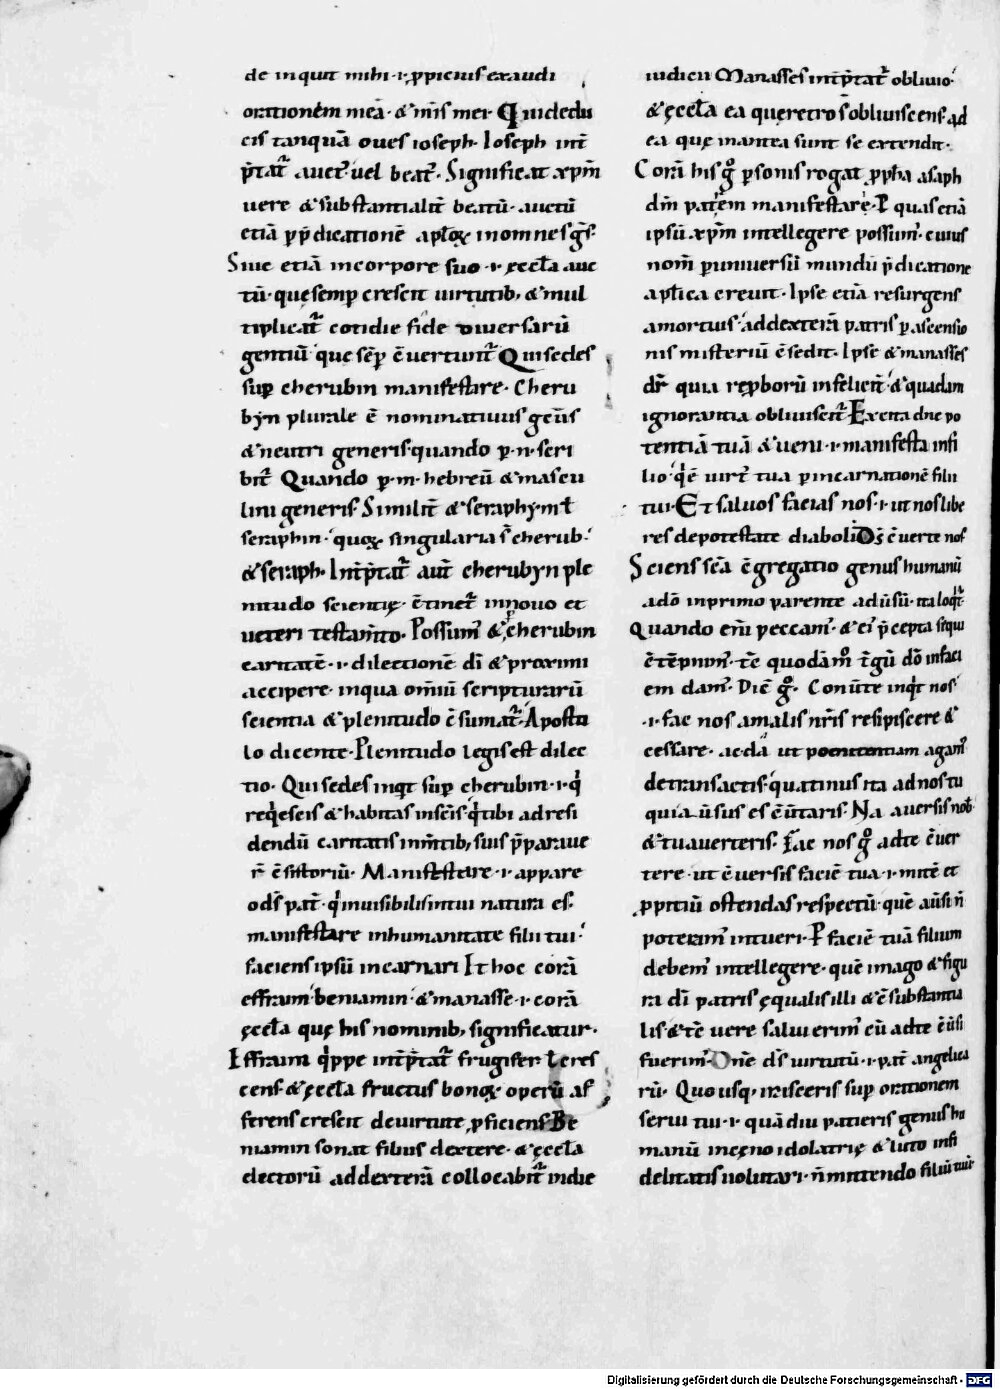 de inquit mihi ·i· ꝓpicius exaudi
orationem meā · & mīs mei · Qui dedu
cis tanquā oues ioseph · Ioseph int̄
p̄tat᷑ auct᷑ uel beat᷑ · Significat xp̄m
uere & substantialit̄ beatū · auctū
etiā ꝑ p̄dicationē aplo℞ in omnes gēs·
Siue etiā in corpore suo ·i· ęccla auc
tū · que semꝑ crescit uirtutib; & mul
tiplicat᷑ cotidie fide diuersarū
gentiū que sēꝑ ↄ̄uertunt᷑ Qui sedes
suꝑ cherubin manifestare · Cheru
byn plurale ē nominatiuus geūs
& neutri generis · quando ꝑ ·n· scri
bit᷑ Quando ꝑ ·m· hebreū & mascu
lini generis · Similit̄ & seraphym ł
seraphin · quo℞ singularia s̄ cherub ·
& seraph · Int̄p̄tat᷑ aut̄ cherubyn ple
nitudo scientię · ↄ̄tinet᷑ in nouo et
ueteri testam̄to · Possum᷒ & ꝑ cherubin
caritatē ·i· dilectionē dī & proximi
accipere · in qua omīū scripturarū
scientia & plenitudo ↄ̄sumat᷑ · Aposto
lo dicente · Plenitudo legis est dilec
tio · Qui sedes inqt suꝑ cherubin ·i· q̇
reqescis & habitas in scīs · q̇ tibi ad resi
dendū caritatis inmtib; suis p̄paraue
r̄ ↄ̄sistoriū · Manifestare ·i· appare
o ds̄ pat̄ · q̇ inuisibilis in tui natura es ·
manifestare in humanitate filii tui ·
faciens ipsū incarnari It hoc corā
effraim · beniamin · & manasse ·i· corā
ęccla quę his nominib; significatur ·
Effraim q̇ppe int̄p̄tat᷑ frugifer ł cres
cens · & ęccla fructus bono℞ operū af
ferens crescit de uirtute ꝓficiens Be
niamin sonat filius dextere · & ęccla
electorū ad dexterā collocabit᷑ in die
iudicii Manasses int̄p̄tat᷑ obliuio ·
& ęccla ea que retro s̄ obliuiscens ad
ea quę in antea sunt se extendit ·
Corā his gͦ ꝑsonis rogat ꝓpha asaph
dm̄ patrem manifestare · P quas etiā
ipsū xp̄m intellegere possum᷒ · cuius
nom̄ ꝑ uniuersū mundū p̄dicatione
aplica creuit · Ipse etiā resurgens
a mortuis · ad dexterā patris ꝑ ascensio
nis misteriū ↄ̄sedit · Ipse & manasses
dr̄ quia reꝓborū infelicit̄ & quadam
ignorantia obliuiscit᷑ Excita dn̄e po
tentiā tuā & ueni ·i· manifesta in fi
lio · q̇ ē uirt᷒ tua ꝑ incarnationē filii
tui · Et saluos facias nos ·i· ut nos libe
res de potestate diaboli Ds̄ ↄ̄uerte nos
Sciens scā ↄ̄gregatio genus humanū
ad͞o in primo parente adūsū · ita loq̇t᷑ ·
Quando em̄ peccam᷒ · & ei᷒ p̄cepta seq̇ ui
ↄ̄tēpnim᷒ · tc̄ quodām͞o t̄gū dō in faci
em dam᷒ · Dic̄ gͦ · Conūte inq̇t nos ·
·i· fac nos a malis nr̄is resipiscere &
cessare · ac da ut poenitentiam agam᷒
de transactis · quatinus ita ad nos tu
quia ūsus es ↄ̄ūtaris · Na auersis nob̄
& tu auerteris · Fac nos gͦ ad te ↄ̄uer
tere · ut ↄ̄uersis faciē tua ·i· mitē et
ꝓpitiū ostendas respectū · quē aūsi n̄
poteram᷒ intueri · P faciē tuā filium
debem᷒ intellegere · quē imago & figu
ra dī patris ęqualis illi & ↄ̄substantia
lis & tc̄ uere salui erim᷒ cū ad te ↄ̄ūsi
fuerim᷒ · Dn̄e ds̄ uirtutū ·i· pat̄ angelica
rū · Quousq; irisceris suꝑ orationem
serui tui ·i· quādiu patieris genus hu
manū in cęno idolatrię & luto infi
delitatis uolutari · n̄ mittendo filiū tuū·
Digitalisierung gefördert durch die Deutsche Forschungsgemeinschaft - DFG